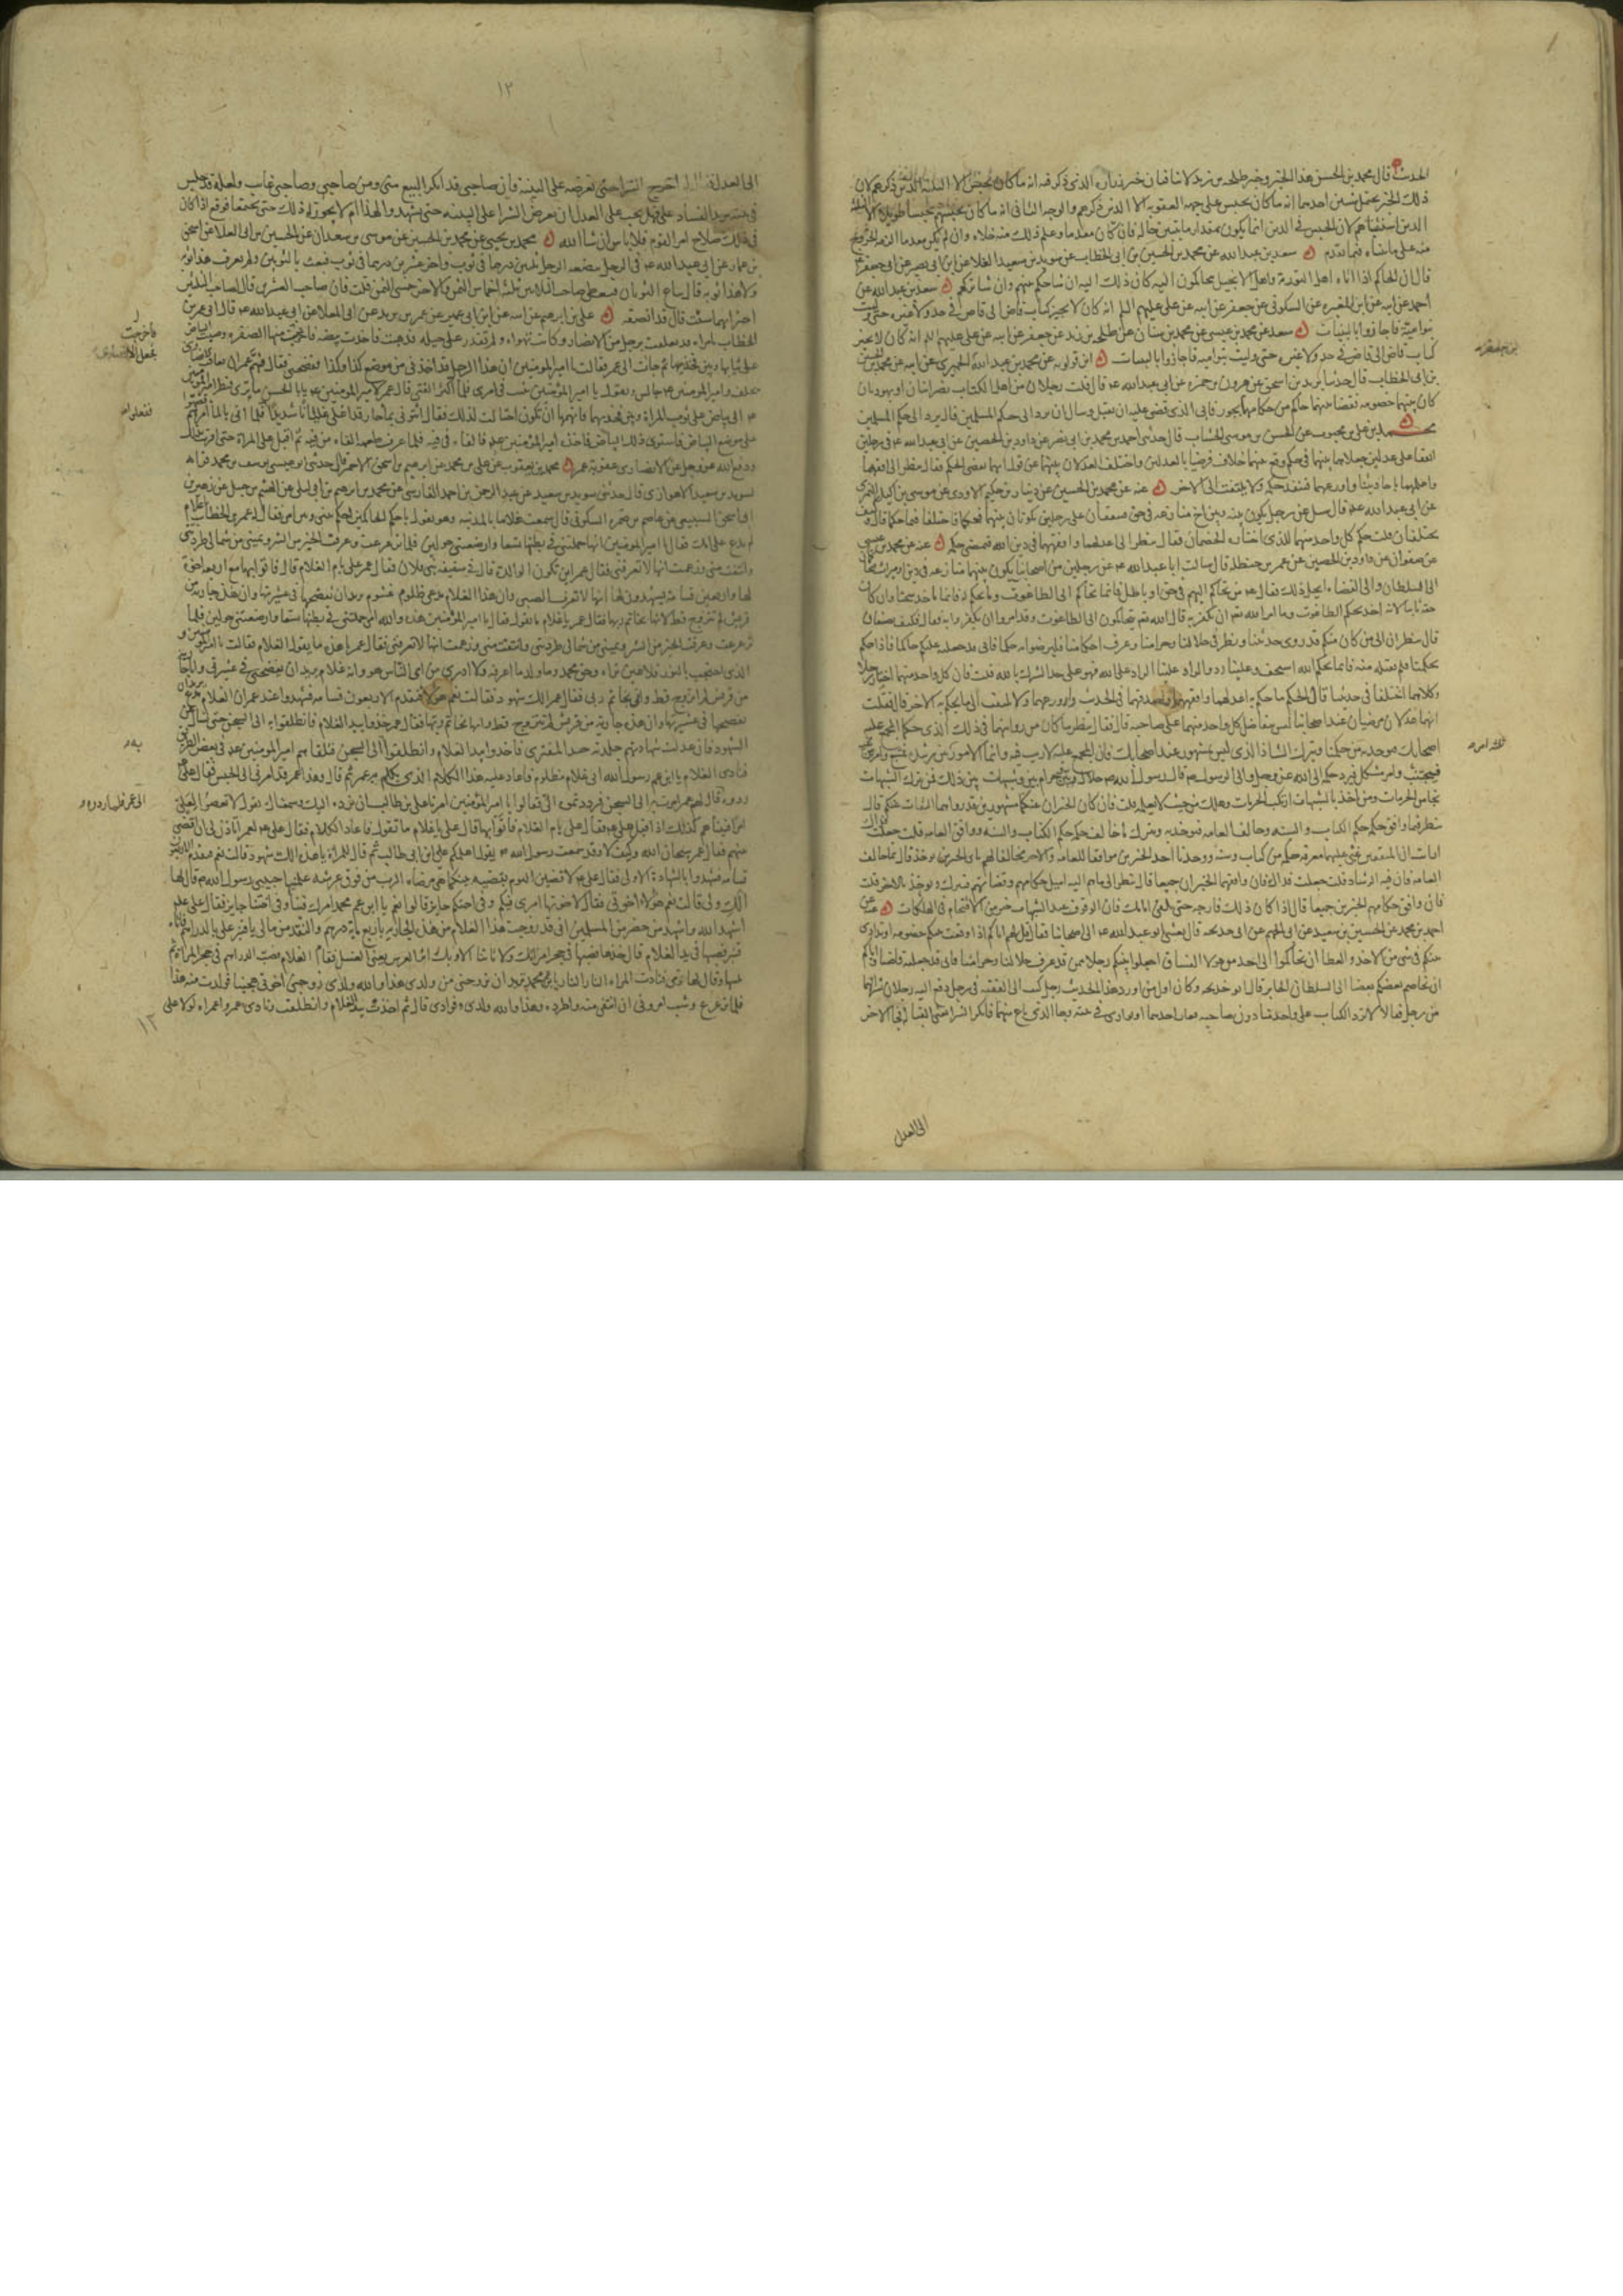 الحديث قال محمد بن الحسن هذا الخبر وخبر طلحه بن زيد لا ينافيان خبر زراره الذي ذكر فيه انه ما كان يحبس الا الثلثة الذين ذكرهم لان
ذلك الخبر يحتمل شيئين احدهما انه ما كان يحبس على جهه العقوبه الا الذين ذكرهم والوجه الثاني انه ما كان يحبسهم حبسا طويلا الا
الذين استثناهم لان الحبس في الدين انما يكون مقدار ما يتبين حاله فان كان معدما وعلم ذلك منه خلاه وان لم يكن معدما الزمه الخروج
منه على ما بيناه فيما تقدم سعد بن عبد الله عن محمد بن الحسين بن ابي الخطاب عن سويد بن سعيد القلا عن ابي بصير عن ابي جعفر
قال ان الحاكم اذا اتاه اهل التورية واهل الانجيل يتحاكمون اليه كان ذلك اليه ان شا حكم بينهم وان شا تركهم سعد بن عبد الله عن
احمد عن ابيه عن ابن المغيره عن السكوني عن جعفر عن ابيه عن علي عليهم السلم انه كان لا يجيز كتاب قاض الى قاض في حد ولا غيره حتى وليت
بنو امية فاجازوا بالبينات سعد عن محمد بن عيسى عن محمد بن سنان عن طلحه بن زيد عن جعفر عن ابيه عن علي عليهم السلم انه كان لا يجيز
كتاب قاض الى قاض في حد ولا غيره حتى وليت بنو اميه فاجازوا بالبينات ابن قولويه عن محمد بن عبد الله الحميري عن ابيه عن محمد بن الحسين
بن ابي الخطاب قال حدثنا يزيد بن اسحق عن هرون بن حمزه عن ابي عبد الله ع قال قلت رجلان من اهل الكتاب نصرانيان او يهوديان
كان بينهما خصومه فقضا بينهما حاكم من حكامهما بجور فابى الذي قضى عليه ان يقبل وسال ان يرد الى حكم المسلمين قال يرد الى حكم المسلمين
محمد بن علي بن محبوب عن الحسن بن موسى الخشاب قال حدثني احمد بن محمد بن ابي نصر عن داود بن الحصين عن ابي عبد الله ع في رجلين
اتفقا على عدلين جعلاهما بينهما في حكم وقع بينهما خلاف فرضيا بالعدلين واختلف العدلان بينهما عن قول ايهما يمضى الحكم فقال ينظر الى افقهما
واعلمهما باحاديثنا واورعهما فينفذ حكمه ولا يلتفت الى الاخر عنه عن محمد بن الحسين عن ذبيان بن حكيم الاودي عن موسى بن اكيل النميري
عن ابي عبد الله ع قال سئل عن رجل يكون بينه وبين اخ منازعه في حق فيتفقان على رجلين يكونان بينهما فحكما فاختلفا فيما حكما قال وكيف
يختلفان قلت حكم كل واحد منهما للذي اختاره الخصمان فقال ينظر الى اعدلهما وافقههما في دين الله فيمضى حكمه عنه عن محمد بن عيسى
عن صفوان عن داود بن الحصين عن عمر بن حنظله قال سالت ابا عبد الله ع عن رجلين من اصحابنا يكون بينهما منازعه في دين او ميراث فتحاكما
الى السلطان والى القضاه ايحل ذلك فقال ع من تحاكم اليهم في حق او باطل فانما تحاكم الى الطاغوت وما يحكم له فانما ياخذ سحتا وان كان
حقه ثابتا لانه اخذ بحكم الطاغوت وما امر الله تع ان يكفر به قال الله تع يتحاكمون الى الطاغوت وقد امروا ان يكفروا به فقال فكيف يصنعان
قال ينظران الى من كان منكم قد روى حديثنا ونظر في حلالنا وحرامنا وعرف احكامنا فليرضوا به حكما فاني قد جعلته عليكم حاكما فاذا حكم
بحكمنا فلم يقبله منه فانما بحكم الله استخف وعلينا رد والراد علينا الراد على الله فهو على حد الشرك بالله قلت فان كل واحد منهما اختار رجلا
وكلاهما اختلفا في حديثنا قال الحكم ما حكم به اعدلهما وافقههما واصدقهما في الحديث واورعهما ولا يلتفت الى ما يحكم به الاخر قال قلت
انهما عدلان مرضيان عند اصحابنا ليس يتفاضل كل واحد منهما على صاحبه قال فقال ينظر ما كان من روايتهما في ذلك الذي حكما المجمع عليه
اصحابك فيوخذ به من حكمنا ويترك الشاذ الذي ليس بمشهور عند اصحابك فان المجمع عليه لا ريب فيه وانما الامور
فيجتنب وامر مشكل يرد حكمه الى الله عز وجل والى الرسول ع قال رسول الله ص حلال بين وحرام بين وشبهات بين ذلك فمن ترك الشبهات
نجا من المحرمات ومن اخذ بالشبهات ارتكب المحرمات وهلك من حيث لا يعلم قلت فان كان الخبران عنكما مشهورين قد رواهما الثقات عنكم قال
ينظر فيما وافق حكمه حكم الكتاب والسنه وخالف العامه فيوخذ به ويترك ما خالف حكمه حكم الكتاب والسنه ووافق العامه قلت جعلت فداك
ارايت ان المفتيين غبي عليهما معرفه حكمه من كتاب وسنه ووجدنا احد الخبرين موافقا للعامه والاخر مخالفا لهم باي الخبرين يوخذ قال بما خالف
العامه فان فيه الرشاد قلت جعلت فداك فان وافقهما الخبران جميعا قال ينظر الى ما هم اليه اميل حكامهم وقضاتهم فيترك ويوخذ بالاخر قلت
فان وافق حكامهم الخبرين جميعا قال اذا كان ذلك فارجه حتى تلقى امامك فان الوقوف عند الشبهات خير من الاقتحام في الهلكات عنه عن
احمد بن محمد عن الحسين بن سعيد عن ابي الجهم عن ابي خديجه قال بعثني ابو عبد الله ع الى اصحابنا فقال قل لهم اياكم اذا وقعت بينكم خصومه او تدارى
بينكم في شى من الاخذ والعطا ان تحاكموا الى احد من هولا الفساق اجعلوا بينكم رجلا ممن قد عرف حلالنا وحرامنا فاني قد جعلته قاضيا واياكم
ان يخاصم بعضكم بعضا الى السلطان الجاير قال ابو خديجه وكان اول من اورد هذا الحديث رجل كتب الى الفقيه في رجل دفع اليه رجلان شرا لهما
من رجل فقالا لا ترد الكتاب على واحد منا دون صاحبه فغاب احدهما او توارى في بيته وجا الذي باع منهما فانكر الشرا
الى العدل
ابن جعفر
١٢
الى العدل اخرج الشرا حتى نعرضه على البينة فان صاحبي قد انكر البيع مني ومن صاحبي وصاحبي غايب ولعله قد جلس
في بيته يريد الفساد على فهل يجب على العدل ان يعرض الشرا على البينه حتى يشهدوا لهذا ام لا يجوز له ذلك حتى يجتمعا فوقع اذا كان
في ذلك صلاح امر القوم فلا باس ان شا الله محمد بن يحيى عن محمد بن الحسين عن موسى بن سعدان عن الحسين بن ابي العلا عن اسحق
بن عمار عن ابي عبد الله ع في الرجل يبضعه الرجل ثلثين درهما في ثوب واخر عشرين درهما في ثوب فبعث بالثوبين ولم يعرف هذا ثوبه
ولا هذا ثوبه قال يباع الثوبان فيعطى صاحب الثلاثين ثلثه اخماس الثمن والاخر خمسي الثمن قلت فان صاحب العشرين قال لصاحب الثلثين
اختر ايهما شئت قال قد انصفه علي بن ابراهيم عن ابيه عن ابن ابي عمير عن عمر بن يزيد عن ابي المعلا عن ابي عبد الله ع قال اتى عمر بن
الخطاب بامراه قد تعلقت برجل من الانصار وكانت تهواه ولم تقدر على حيله فذهبت فاخذت بيضه فاخرجت منها الصفره وصبت البياض
على ثيابها وبين فخذيها ثم جات الى عمر فقالت يا امير المومنين ان هذا الرجل قد اخذني من موضع كذا وكذا ففضحني فقال فهم عمر ان يعاقب الانصاري
يحلف وامير المومنين ع جالس ويقول يا امير المؤمنين تثبت في امري فلما اكثر الفتى قال عمر لامير المومنين ع يا با الحسن ما ترى فنظر امير المومنين
ع الى بياض على ثوب المراة وبين فخذيها فاتهمها ان تكون احتالت لذلك فقال ائتوني بماء حار قد اغلي غليانا شديدا فلما اتى بالما امرهم
على موضع البياض فاستوى ذلك البياض فاخذه امير المؤمنين ع فالقاه في فيه فلما عرف طعمه القاه من فيه ثم اقبل على المراة حتى اقرت بذلك
ودفع الله عز وجل عن الانصاري عقوبة عمر محمد بن يعقوب عن علي بن محمد عن ابراهيم بن اسحق الاحمر قال حدثني ابو عيسى يوسف بن محمد قرابه
لسويد بن سعيد الاهوازي قال حدثني سويد بن سعيد عن عبد الرحمن بن احمد الفارسي عن محمد بن ابراهيم بن ابي ليلى عن الهيثم بن جميل عن زهير بن
ابي اسحق السبيعي عن عاصم بن حمزه السلولي قال سمعت غلاما بالمدينه وهو يقول يا حكم الحاكمين احكم بيني وبين امي فقال له عمر بن الخطاب يا غلام
لم تدع على امك فقال يا امير المومنين انها حملتني في بطنها تسعا وارضعتني حولين فلما ترعرعت وعرفت الخير من الشر ويميني من شمالي طردتني
وانتفت مني وزعمت انها لا تعرفني فقال عمر اين تكون الوالدة قال في سقيفه بني فلان فقال عمر علي بام الغلام قال فاتوا بها مع اربعه اخوة
لها واربعين قسامة يشهدون لها انها لا تعرف الصبي وان هذا الغلام مدعي ظلوم غشوم يريد ان يفضحها في عشيرتها وان هذه جارية من
قريش لم تتزوج قط لانها بخاتم ربها فقال عمر يا غلام ما تقول فقال يا امير المؤمنين هذه والله امي حملتني في بطنها تسعا وارضعتني حولين فلما
ترعرعت وعرفت الخير من الشر ويميني من شمالي طردتني وانتفت مني وزعمت انها لا تعرفني فقال عمر يا هذه ما يقول الغلام فقالت يا امير المؤمنين و
الذي احتجب بالنور فلا عين تراه وحق محمد وما ولد ما اعرفه ولا ادري من اي الناس هو وانه غلام يريد ان يفضحني في عشيرتي وانا جارية
من قريش لم اتزوج قط واني بخاتم ربي فقال عمر الك شهود فقالت نعم هؤلا فتقدم الاربعون قسامه فشهدوا عند عمر ان الغلام مدع يريد ان
يفضحها في عشيرتها وان هذه جارية من قريش لم تتزوج قط وانها بخاتم ربها فقال عمر خذوا بيد الغلام فانطلقوا به الى السجن حتى نسال عن
الشهود فان عدلت شهادتهم جلدته حد المفتري فاخذوا بيد الغلام وانطلقوا الى السجن فتلقاهم امير المومنين ع في بعض الطريق
فنادى الغلام يا ابن عم رسول الله انني غلام مظلوم فاعاد عليه هذا الكلام الذي تكلم به عمر ثم قال وهذا عمر قد امر بي الى الحبس فقال علي ع
ردوه قال لهم عمر امرت به الى السجن فرددتموه الي فقالوا يا امير المؤمنين امرنا علي بن طالب ان نرده اليك وسمعناك تقول لا تعصوا لعلي
امرا فبينا هم كذلك اذ اقبل علي ع فقال علي بام الغلام فاتوا بها فقال علي يا غلام ما تقول فاعاد الكلام فقال علي ع لعمر اتاذن لي ان اقضي
بينهم فقال عمر سبحان الله وكيف لا وقد سمعت رسول الله ص يقول اعلمكم علي بن ابي طالب ثم قال للمراة يا هذه الك شهود قالت نعم فتقدم الاربعون
قسامه فشهدوا بالشهادة الاولى فقال علي ع لاقضين اليوم بقضيه بينكما هي مرضاه الرب من فوق عرشه علمنيها حبيبي رسول الله ص ثم قال لها
الك ولي قالت نعم هؤلاء اخوتي فقال لاخوتها امري فيكم وفي اختكم جايز قالوا نعم يا ابن عم محمد امرك فينا وفي اختنا جايز فقال علي ع
اشهد الله واشهد من حضر من المسلمين اني قد زوجت هذا الغلام من هذه الجارية باربع ماية درهم والنقد من مالي يا قنبر علي بالدراهم فاتاه
قنبر فصبها في يد الغلام قال خذها فصبها في حجر امراتك ولا تاتنا الا وبك اثر العرس يعني الغسل فقام الغلام فصب الدراهم في حجر المراة ثم
تلببها وقال لها قومي فنادت المراه النار النار يا ابن عم محمد تريد ان تزوجني من ولدي هذا والله ولدي زوجني اخوتي هجينا فولدت منه هذا
فلما ترعرع وشب امروني ان انتفي منه واطرده وهذا والله ولدي وفوادي قال ثم اخذت بيد الغلام وانطلقت ونادى عمر واعمراه لولا علي
فاخرجت
ففعلوا
١٢